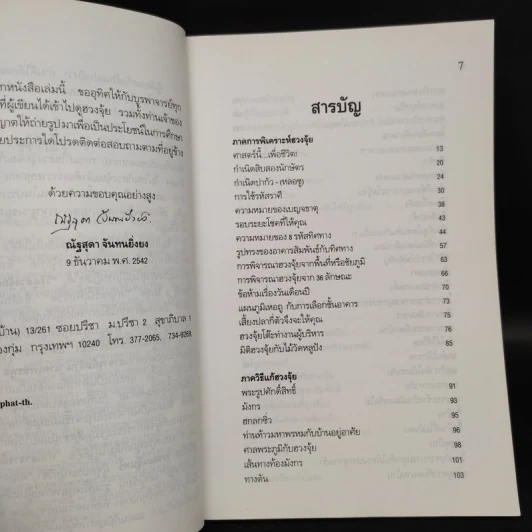 กหนังสือเล่มนี้ ขออุทิศให้กับบูรพาจารย์ทุก
ที่ผู้เขียนได้เข้าไปดูฮวงจุ้ย รวมทั้งท่านเจ้าของ
ญาตให้ถ่ายรูปมาเพื่อเป็นประโยชน์ในการศึกษา
ยประการใดโปรดติดต่อสอบถามตามที่อยู่ข้าง
ด้วยความขอบคุณอย่างสูง
ณัฐสุดา จันทนยิ่งยง
9 ธันวาคม พ.ศ. 2542
บ้าน) 13/261 ซอยปรีชา ม.ปรีชา 2 สุขาภิบาล 1
องกุ่ม กรุงเทพฯ 10240 โทร. 377-2065, 734-9269,
phat-th.
7
สารบัญ
ภาคการพิเคราะห์ฮวงจุ้ย
ศาสตร์นี้...เพื่อชีวิต! 13
กำเนิดสิบสองนักษัตร 20
กำเนิดปากัว - (หลอซู) 24
การใช้รหัสราศี 30
ความหมายของเบญจธาตุ 38
รอบระยะโชคที่ให้คุณ 40
ความหมายของ 8 รหัสทิศทาง 44
รูปทรงของอาคารสัมพันธ์กับทิศทาง 57
การพิจารณาฮวงจุ้ยจากพื้นที่หรือชัยภูมิ 63
การพิจารณาฮวงจุ้ยจาก 36 ลักษณะ 66
ข้อห้ามเรื่องวันเดือนปี 70
แผนภูมิเหอถู กับการเลือกชั้นอาคาร 73
เลี้ยงปลากี่ตัวจึงจะให้คุณ 75
ฮวงจุ้ยโต๊ะทำงานผู้บริหาร 77
มิติฮวงจุ้ยกับไม้วัดหลูปัง 85
ภาควิธีแก้ฮวงจุ้ย
พระรูปศักดิ์สิทธิ์ 91
มังกร 93
ฮกลกซิ่ว 95
ท่านท้าวมหาพรหมกับบ้านอยู่อาศัย 96
ศาลพระภูมิกับฮวงจุ้ย 98
เส้นทางท้องมังกร 101
ทางตัน 103